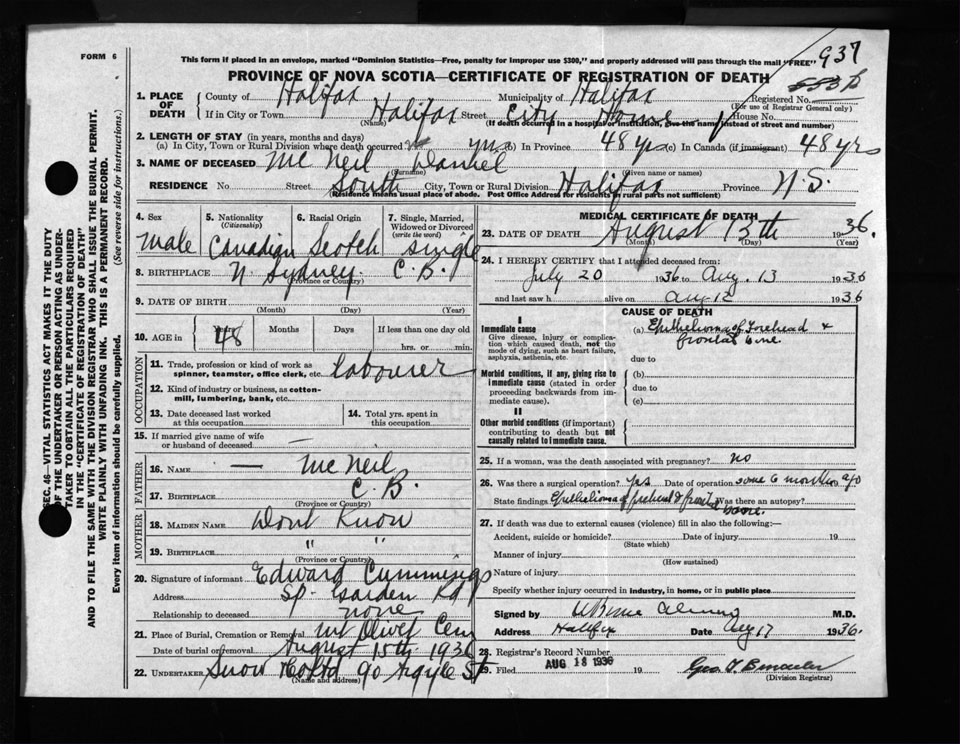 FORM 6
This form if placed in an envelope, marked "Dominion Statistics—Free, penalty for improper use $300," and properly addressed will pass through the mail "FREE"
937
PROVINCE OF NOVA SCOTIA—CERTIFICATE OF REGISTRATION OF DEATH
1. PLACE OF DEATH County of Halifax Municipality of Halifax Registered No.
(For use of Registrar General only)
If in City or Town Halifax Street City Home House No.
(Name) (If death occurred in a hospital or institution, give the name instead of street and number)
2. LENGTH OF STAY (in years, months and days)
(a) In City, Town or Rural Division where death occurred (b) In Province 48 yrs (c) In Canada (if immigrant) 48 yrs
3. NAME OF DECEASED Mc Neil Daniel
(Surname) (Given name or names)
RESIDENCE No. Street South City, Town or Rural Division Halifax Province N.S.
(Residence means usual place of abode. Post Office Address for residents of rural parts not sufficient)
4. Sex Male
5. Nationality (Citizenship) Canadian
6. Racial Origin Scotch
7. Single, Married, Widowed or Divorced (write the word) Single
8. BIRTHPLACE N. Sydney. C.B.
(Province or Country)
9. DATE OF BIRTH
(Month) (Day) (Year)
10. AGE in Years 48 Months Days If less than one day old
hrs. or min.
OCCUPATION
11. Trade, profession or kind of work as spinner, teamster, office clerk, etc. Labourer
12. Kind of industry or business, as cotton-mill, lumbering, bank, etc.
13. Date deceased last worked at this occupation
14. Total yrs. spent in this occupation
15. If married give name of wife or husband of deceased —
FATHER
16. NAME — Mc Neil
17. BIRTHPLACE C.B.
(Province or Country)
MOTHER
18. MAIDEN NAME Dont Know
19. BIRTHPLACE " "
(Province or Country)
20. Signature of informant Edward Cummings
Address Sp. Garden Rd
Relationship to deceased none
21. Place of Burial, Cremation or Removal Mt Olivet Cem
Date of burial or removal August 15th 1936
22. UNDERTAKER Snow Co Ltd 90 Argyle St
(Name and address)
MEDICAL CERTIFICATE OF DEATH
23. DATE OF DEATH August 13th 1936.
(Month) (Day) (Year)
24. I HEREBY CERTIFY that I attended deceased from:
July 20 1936 to Aug. 13 1936
and last saw h alive on Aug 12 1936
CAUSE OF DEATH
I
Immediate cause
Give disease, injury or complication which caused death, not the mode of dying, such as heart failure, asphyxia, asthenia, etc.
(a) Epithelioma of Forehead & frontal bone
due to
Morbid conditions, if any, giving rise to immediate cause (stated in order proceeding backwards from immediate cause).
(b)
due to
(c)
II
Other morbid conditions (if important) contributing to death but not causally related to immediate cause.
25. If a woman, was the death associated with pregnancy? No
26. Was there a surgical operation? Yes Date of operation some 6 months ago
State findings Epithelioma of forehead & frontal bone. Was there an autopsy?
27. If death was due to external causes (violence) fill in also the following:—
Accident, suicide or homicide? Date of injury 19
(State which)
Manner of injury
(How sustained)
Nature of injury
Specify whether injury occurred in industry, in home, or in public place
Signed by M.D.
Address Halifax Date Aug 17 1936.
28. Registrar's Record Number
29. Filed AUG 18 1936 19
(Division Registrar)
SEC. 46—VITAL STATISTICS ACT MAKES IT THE DUTY
OF THE UNDERTAKER OR PERSON ACTING AS UNDER-
TAKER TO OBTAIN ALL THE PARTICULARS REQUIRED
IN THE "CERTIFICATE OF REGISTRATION OF DEATH"
AND TO FILE THE SAME WITH THE DIVISION REGISTRAR WHO SHALL ISSUE THE BURIAL PERMIT.
WRITE PLAINLY WITH UNFADING INK. THIS IS A PERMANENT RECORD.
Every item of information should be carefully supplied. (See reverse side for instructions.)